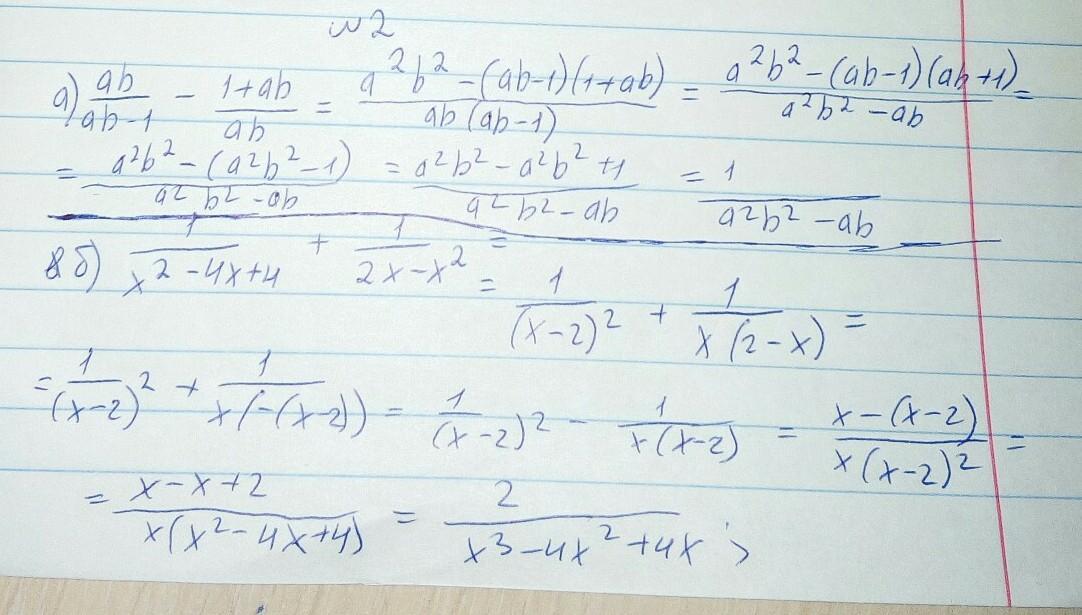 №2
а) ab/(ab-1) - (1+ab)/(ab) = (a²b² - (ab-1)(1+ab))/(ab(ab-1)) = (a²b² - (ab-1)(ab+1))/(a²b² - ab) =
= (a²b² - (a²b² - 1))/(a²b² - ab) = (a²b² - a²b² + 1)/(a²b² - ab) = 1/(a²b² - ab)
б) 1/(x² - 4x + 4) + 1/(2x - x²) = = 1/(x-2)² + 1/(x(2-x)) =
= 1/(x-2)² + 1/(x(-(x-2))) = 1/(x-2)² - 1/(x(x-2)) = (x-(x-2))/(x(x-2)²) =
= (x-x+2)/(x(x² - 4x + 4)) = 2/(x³ - 4x² + 4x);